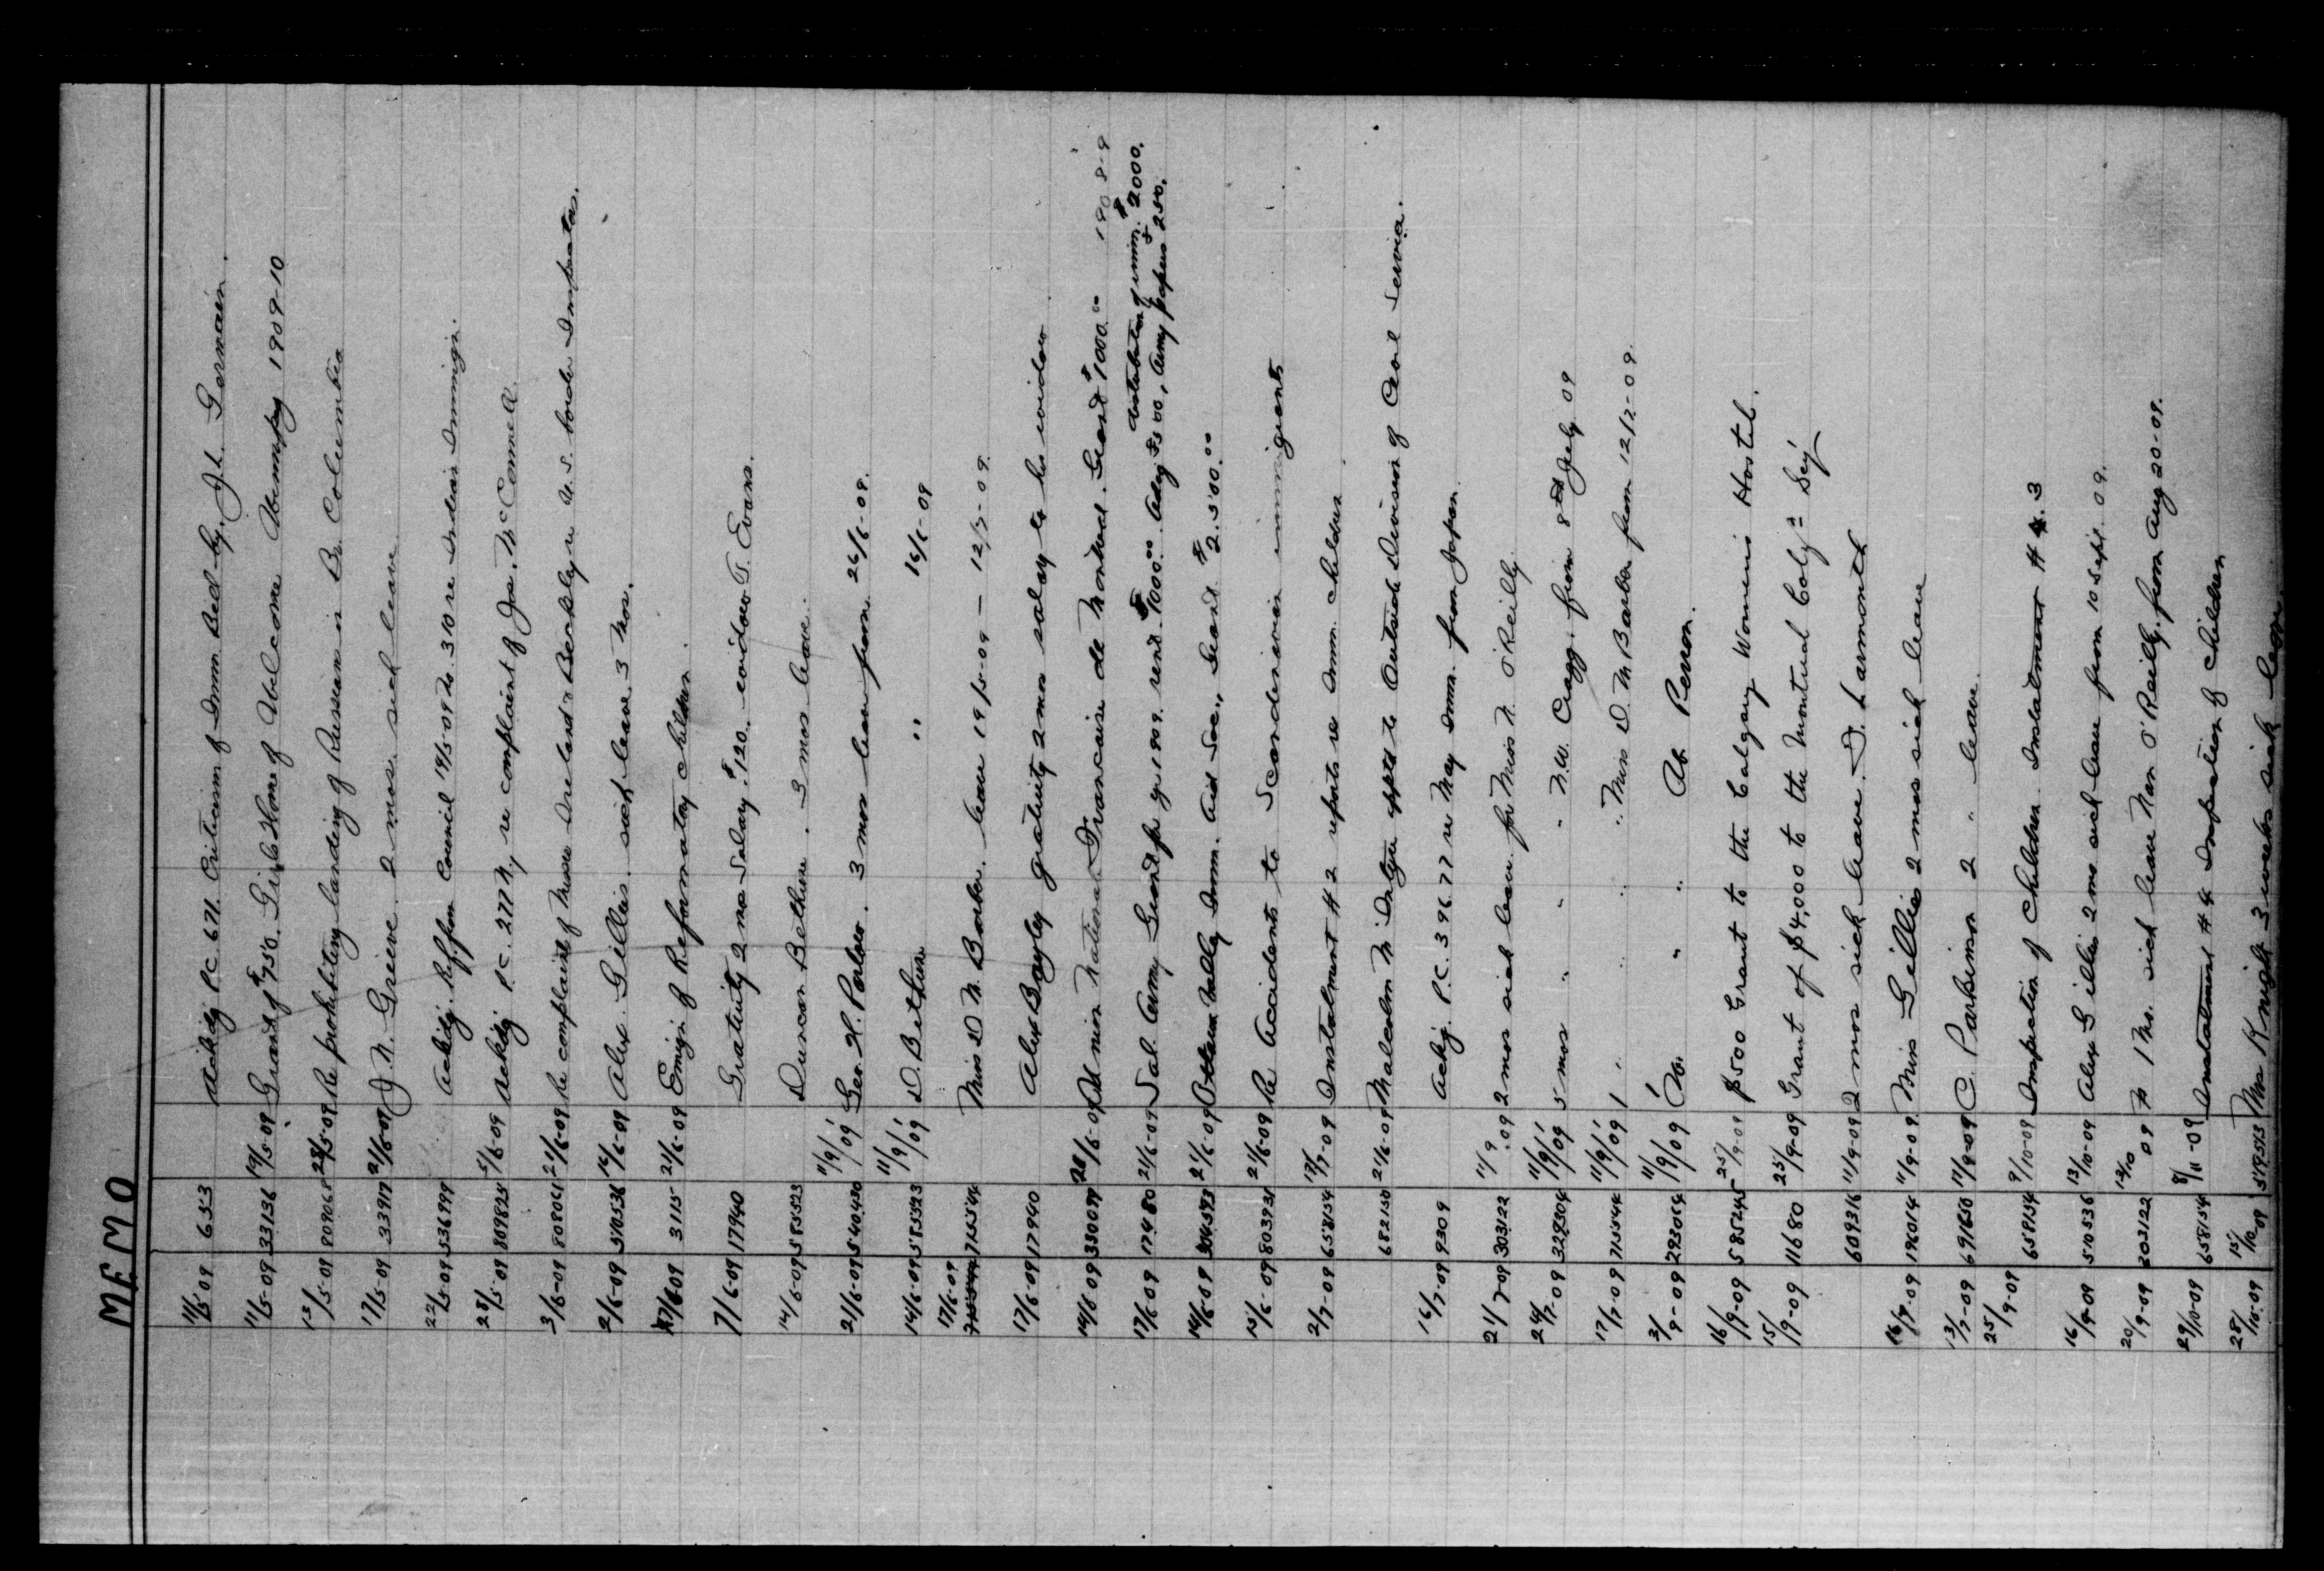 MEMO
11/5 09 6553 Ackdg P.C. 671. Criticism of Imm Bed by J.L. Germain.
11/5-09 33136 19/5-09 Grant of $750. Girls Home of Welcome Winnipeg 1909-10
13/5-09 809068 28/5-09 Re prohibiting landing of Russians in Br. Columbia
17/5-09 33917 21/5-09 J.N. Grieve 2 mos. sick leave
22/5-09 536999 Ackdg. Council 19/5-09 No. 310 re Indian Immign.
28/5-09 809825 5/6-09 Ackdg P.C. 277 re complaint of Jos. McConnell
3/6-09 808061 21/6-09 Re complaint of Messrs Ireland & Berkley re U.S. border Inspectors.
2/6-09 510536 16/6-09 Alex. Gillies. sick leave 3 mos.
3115- 21/6-09 Emign of Reformatory children.
7/6-09 17940 Gratuity 2 mos Salary. $120. widow T. Evans.
14/6-09 585523 Duncan Bethune. 3 mos leave.
21/6-09 540430 11/9/09 Geo. H. 3 mos leave from 26/6-09.
14/6-09 585523 11/9/09 D. Bethune " 16/6-09
17/6-09 715544 Miss D M. Barber. leave 19/5-09 — 12/7-09.
17/6-09 17940 Alex Bayley gratuity 2 mos salary to his widow
14/6 09 330099 28/6-09 National Francaise de Montreal. Grant $1000.00 1908-9
17/6-09 17480 21/6-09 Sal. Army Grant for yr 1909. rend. $1000.00. Adv $500, distribution of imm. $2000. Army papers 250.
14/6-09 304593 21/6-09 Ottawa Valley Imm. Aid Soc., Grant $2.500.00
15/6-09 803931 21/6-09 Re Accidents to Scandinavian immigrants
2/7-09 658154 17/7-09 Instalment # 2 reports re Imm. children
682150 21/6-09 Malcolm M Intyre apptd to Outside Division of Civil Service.
16/7-09 9309 Ackg. P.C. 39677 re May Imm. from Japan.
21/7-09 303122 11/9.09 2 mos sick leave for Miss N. O'Reilly.
24/7-09 329304 11/9/09 5 mos " " " N.W. Cragg. from 8th July 09
17/7-09 715544 11/9/09 1 " " " Miss D. M Barber from 12/7-09.
3/9-09 293064 11/9/09 Do. " " Ab. Perron.
16/9-09 585245 25/9-09 $500 Grant to the Calgary Womens Hostel.
15/9-09 11680 25/9-09 Grant of $4,000 to the Montreal Colzn Soc'y
609316 11/9-09 2 mos sick leave. D. Larmonth
16/9-09 196014 11/9-09 Miss Gillies 2 mos sick leave
13/7-09 691650 11/9-09 C. Parkinson 2 " leave.
25/9-09 658154 9/10-09 Inspection of Children Instalment # 3
16/9-09 510536 13/10-09 Alex Gillies 2 mo sick leave from 10 Sept. 09.
20/9-09 303122 13/10 09 1 Mo. sick leave Nan O'Reilly. from Aug 20-09.
29/10-09 658154 8/11-09 Instalment # 4 Inspection of children
28/10-09 15/10-09 519593 Mrs Knight 3 weeks sick leave.